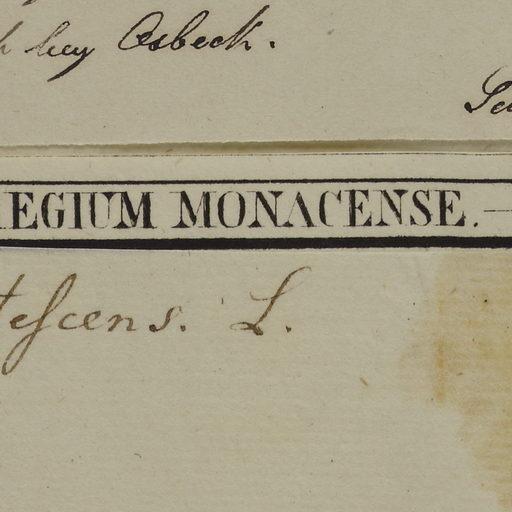 h bey Osbeck.
Se
EGIUM MONACENSE.—
tescens. L.